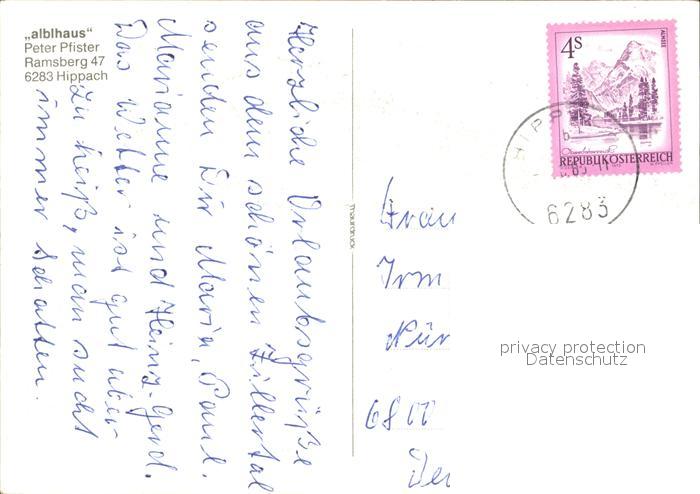 „alblhaus"
Peter Pfister
Ramsberg 47
6283 Hippach
Herzliche Urlaubsgrüße
aus dem schönen Zillertal
senden Dir Maria, Paul,
Marianne und Heinz-Gerd.
Das Wetter ist gut aber
zu heiß, man sucht
immer Schatten.
4S
ALMSEE
Oberösterreich
REPUBLIK ÖSTERREICH
HIPP
6283
Frau
Irm
Nür
6800
privacy protection
Datenschutz